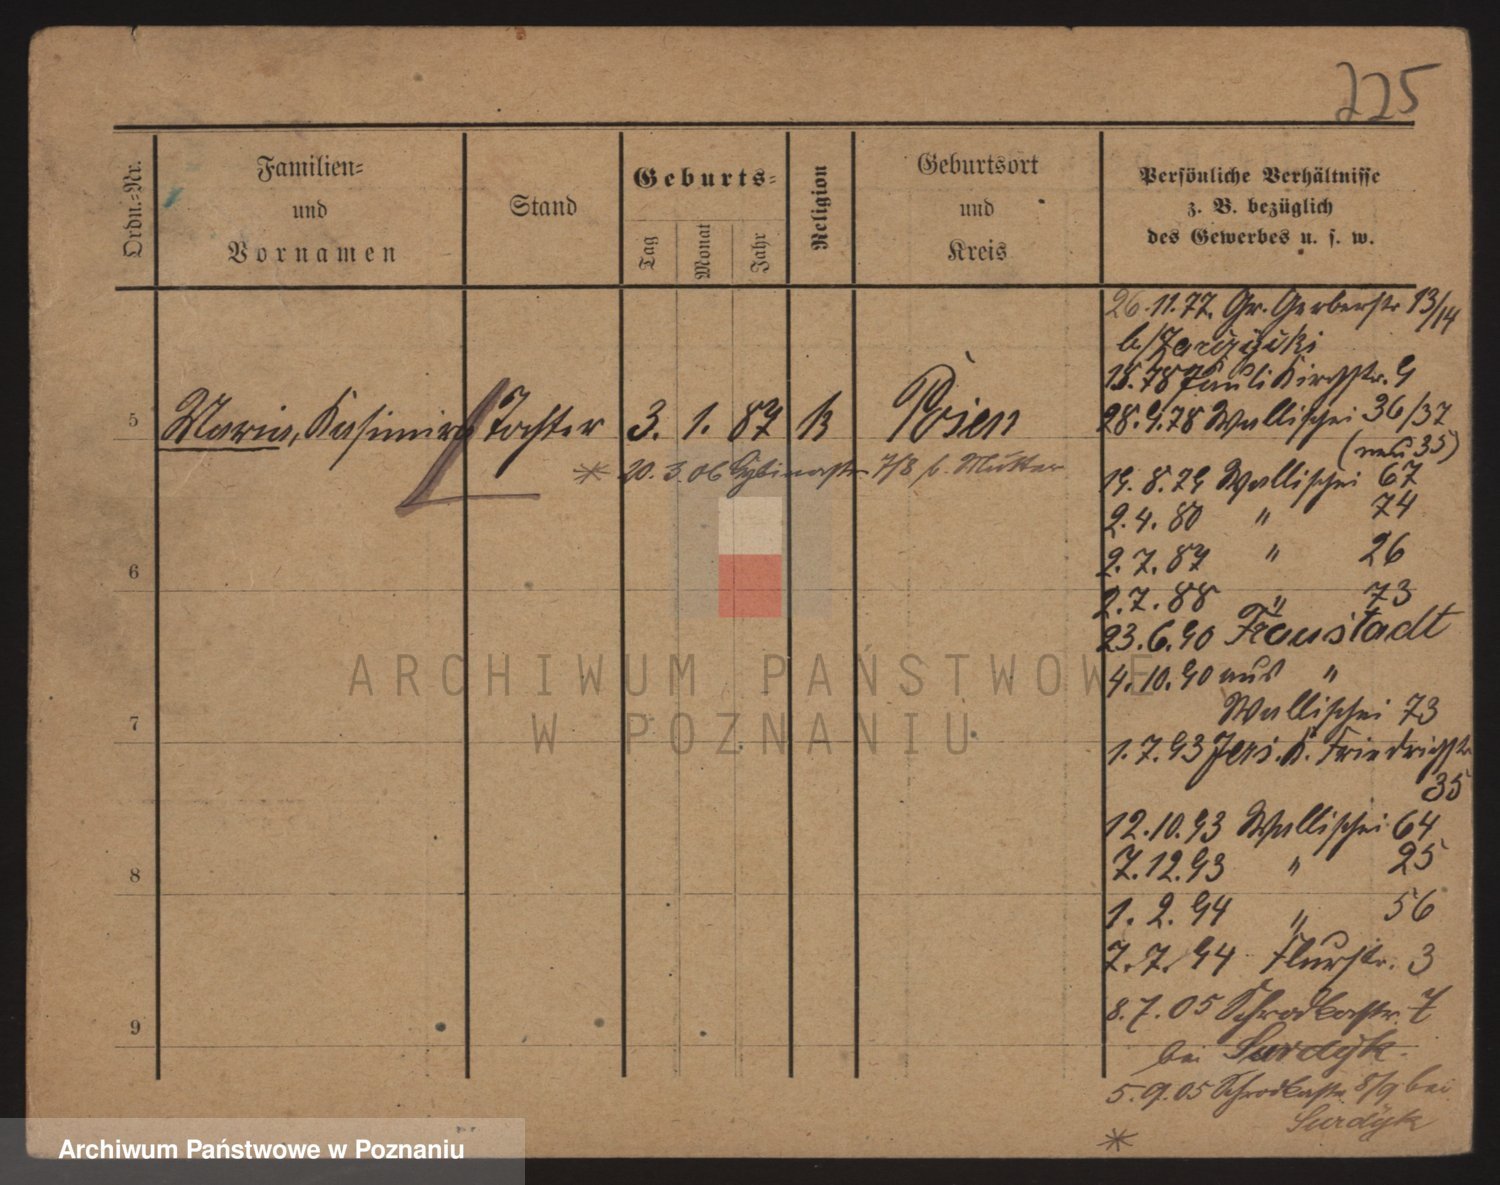 225
Ordn.-Nr.
Familien-
und
Vornamen
Stand
Geburts-
Tag
Monat
Jahr
Religion
Geburtsort
und
Kreis
Persönliche Verhältnisse
z. B. bezüglich
des Gewerbes u. s. w.
5
Maria, Kasimira Tochter 3. 1. 87 k Posen
* 20. 3. 06 7/8 b. Mutter
6
7
8
9
26.11.77. Gr. Gerberstr 13/14
b/
15. 78 Pauli Kirchstr. 9
28.9.78 Wallischei 36/37
(neu 35)
19.8.79 Wallischei 67
2.4.80 " 74
2.7.87 " 26
2.7.88 " 73
23.6.90 Fraustadt
4.10.90 aus "
Wallischei 73
1.7.93 Jers. K. Friedrichstr
35
12.10.93 Wallischei 64
7.12.93 " 25
1. 2. 94 " 56
7.7.94 Flurstr. 3
8.7.05 Schrodkastr. 7
bei Surdyk.
5.9.05 Schrodkastr 8/9 bei
Surdyk
*
ARCHIWUM PAŃSTWOWE
W POZNANIU
Archiwum Państwowe w Poznaniu